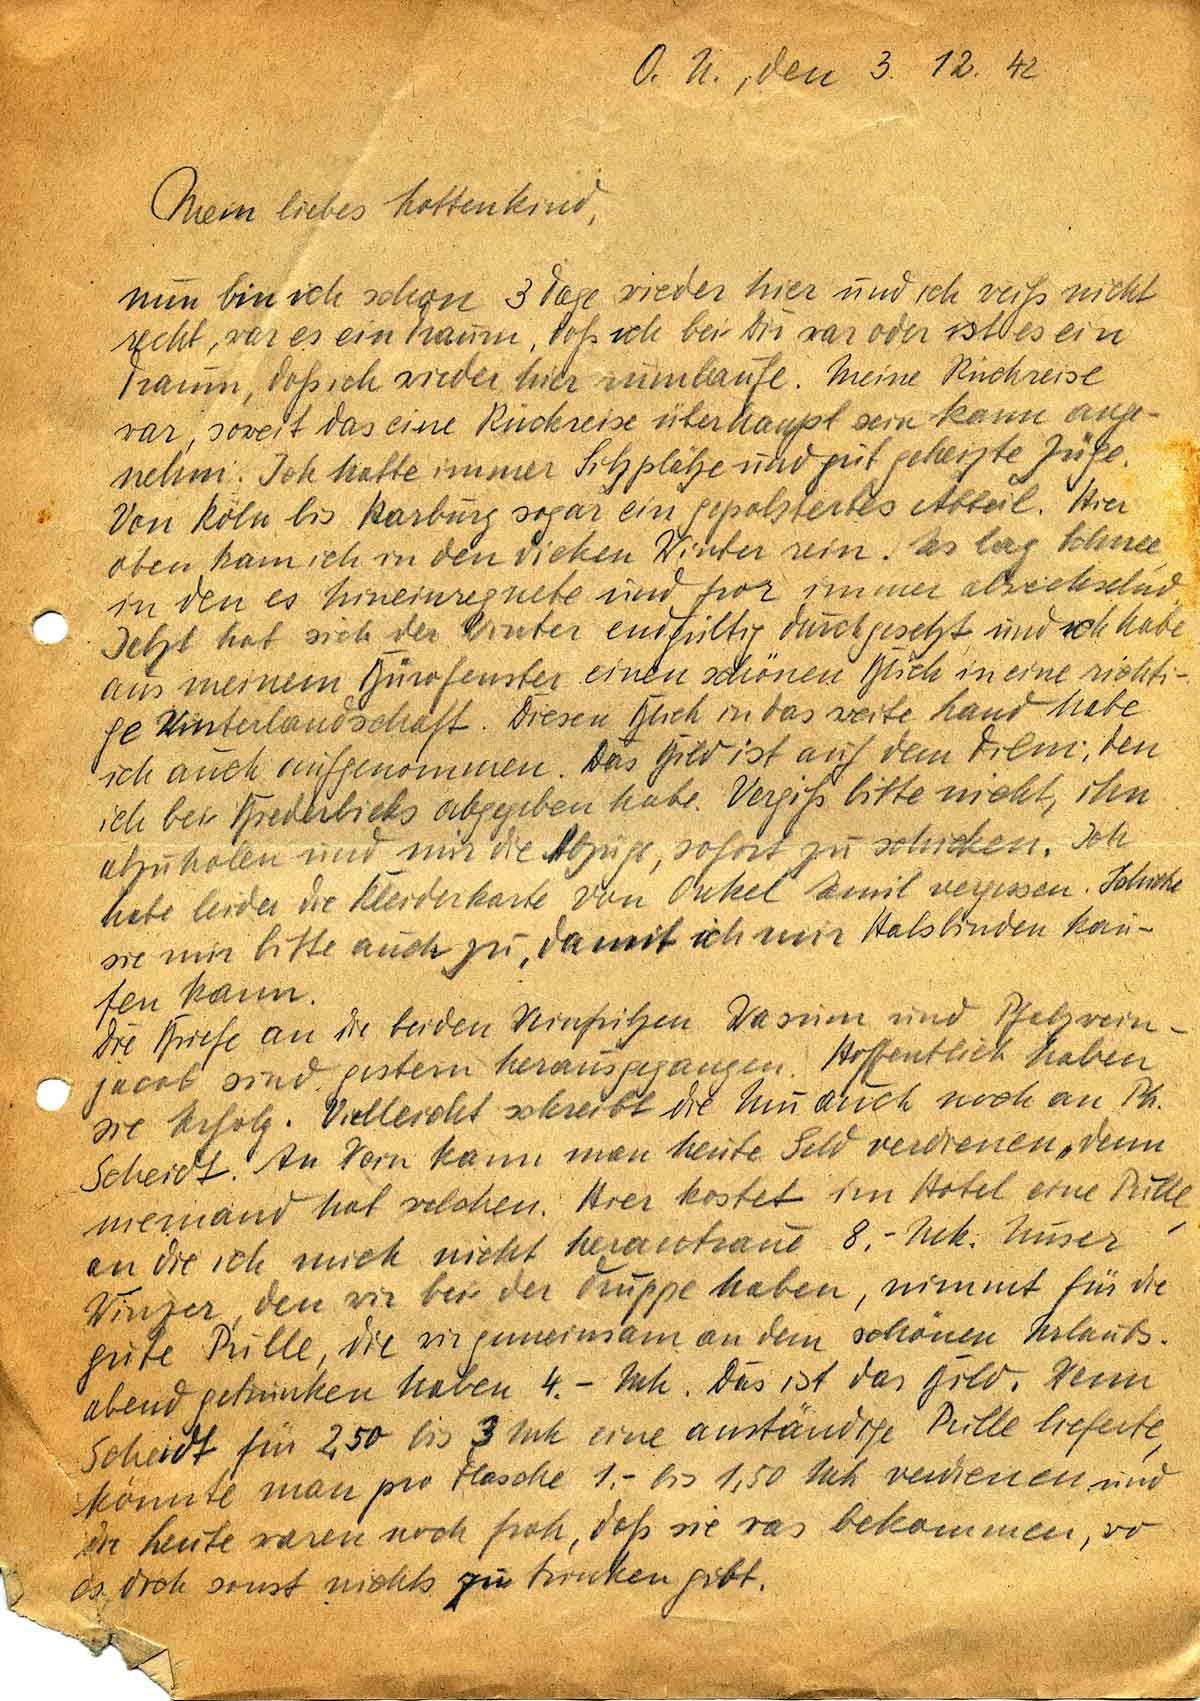 O. U., den 3. 12. 42
Mein liebes Lottenkind,
nun bin ich schon 3 Tage wieder hier und ich weiß nicht
recht, war es ein Traum, daß ich bei Dir war oder ist es ein
Traum, daß ich wieder hier rumlaufe. Meine Rückreise
war, soweit das eine Rückreise überhaupt sein kann ange-
nehm. Ich hatte immer Sitzplätze und gut geheizte Züge.
Von Köln bis Harburg sogar ein gepolstertes Abteil. Hier
oben kam ich in den dicken Winter rein. Es lag Schnee,
in den es hineinregnete und fror immer abwechselnd.
Jetzt hat sich der Winter endgültig durchgesetzt und ich habe
aus meinem Bürofenster einen schönen Blick in eine richti-
ge Winterlandschaft. Diesen Blick in das weite Land habe
ich auch aufgenommen. Das Bild ist auf dem Film, den
ich bei abgegeben habe. Vergiß bitte nicht, ihn
abzuholen und mir die Abzüge, sofort zu schicken. Ich
habe leider die Kleiderkarte von Onkel Emil vergessen. Schicke
sie mir bitte auch zu, damit ich mir Halsbinden kau-
fen kann.
Die Briefe an die beiden Weinfritzen Wasum und Pfalzwein-
jacob sind gestern herausgegangen. Hoffentlich haben
sie Erfolg. Vielleicht schreibt die Mu auch noch an Ph.
Scheidt. An Wein kann man heute Geld verdienen, denn
niemand hat welchen. Hier kostet im Hotel eine Pulle,
an die ich mich nicht herantraue 8.- Mk. Unser
Winzer, den wir bei der Truppe haben, nimmt für die
gute Pulle, die wir gemeinsam an dem schönen Urlaubs-
abend getrunken haben 4.- Mk. Das ist das Bild. Wenn
Scheidt für 2,50 bis 3 Mk eine anständige Pulle lieferte,
könnte man pro Flasche 1.- bis 1,50 Mk verdienen und
die Leute wären noch froh, daß sie was bekommen, wo
es doch sonst nichts zu trinken gibt.